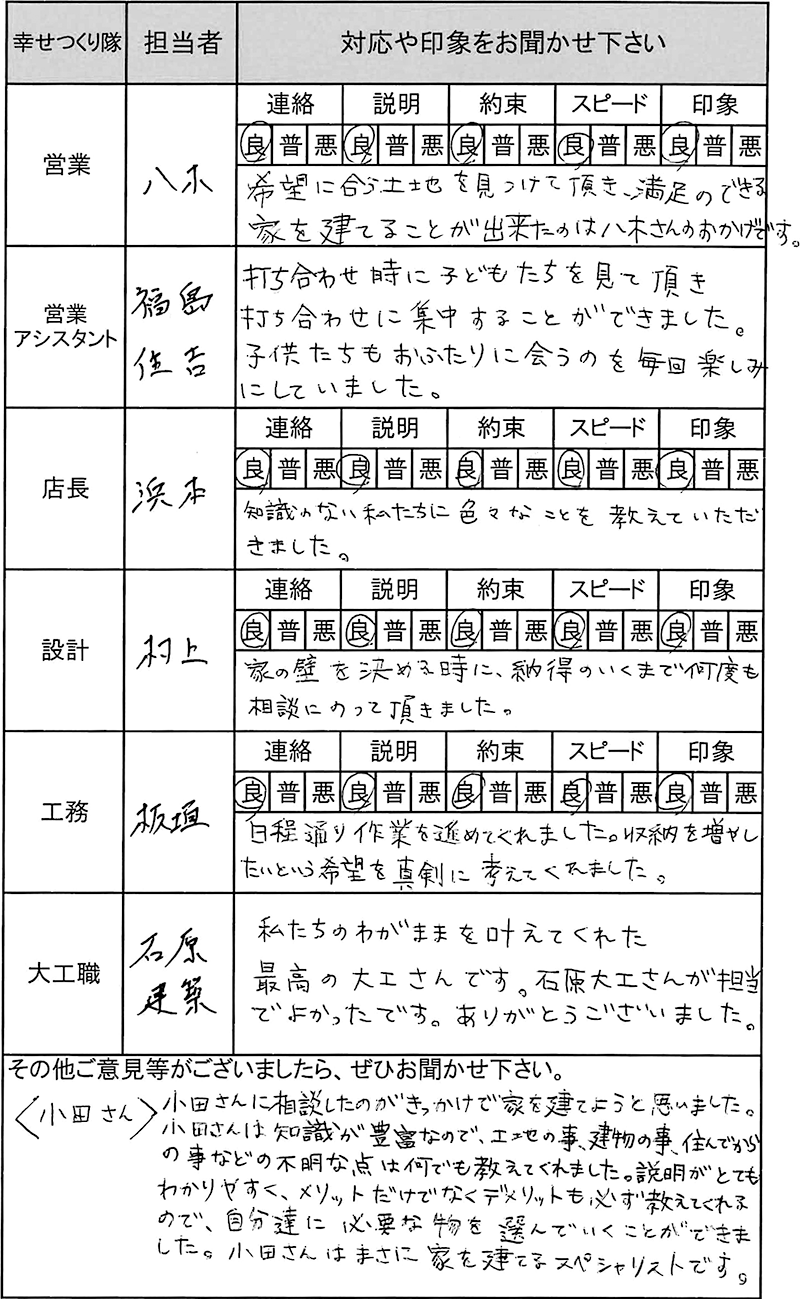 幸せつくり隊 担当者 対応や印象をお聞かせ下さい
営業 八木
連絡 説明 約束 スピード 印象
良 普 悪 良 普 悪 良 普 悪 良 普 悪 良 普 悪
希望に合う土地を見つけて頂き、満足のできる
家を建てることが出来たのは八木さんのおかげです。
営業
アシスタント
福島
住吉
打ち合わせ時に子どもたちを見て頂き
打ち合わせに集中することができました。
子供たちもおふたりに会うのを毎回楽しみ
にしていました。
店長 浜本
連絡 説明 約束 スピード 印象
良 普 悪 良 普 悪 良 普 悪 良 普 悪 良 普 悪
知識のない私たちに色々なことを教えていただ
きました。
設計 村上
連絡 説明 約束 スピード 印象
良 普 悪 良 普 悪 良 普 悪 良 普 悪 良 普 悪
家の壁を決める時に、納得のいくまで何度も
相談にのって頂きました。
工務 板垣
連絡 説明 約束 スピード 印象
良 普 悪 良 普 悪 良 普 悪 良 普 悪 良 普 悪
日程通り作業を進めてくれました。収納を増やし
たいという希望を真剣に考えてくれました。
大工職
石原
建築
私たちのわがままを叶えてくれた
最高の大工さんです。石原大工さんが担当
でよかったです。ありがとうございました。
その他ご意見等がございましたら、ぜひお聞かせ下さい。
〈小田さん〉
小田さんに相談したのがきっかけで家を建てようと思いました。
小田さんは知識が豊富なので、土地の事、建物の事、住んでから
の事などの不明な点は何でも教えてくれました。説明がとても
わかりやすく、メリットだけでなくデメリットも必ず教えてくれる
ので、自分達に必要な物を選んでいくことができま
した。小田さんはまさに家を建てるスペシャリストです。
9